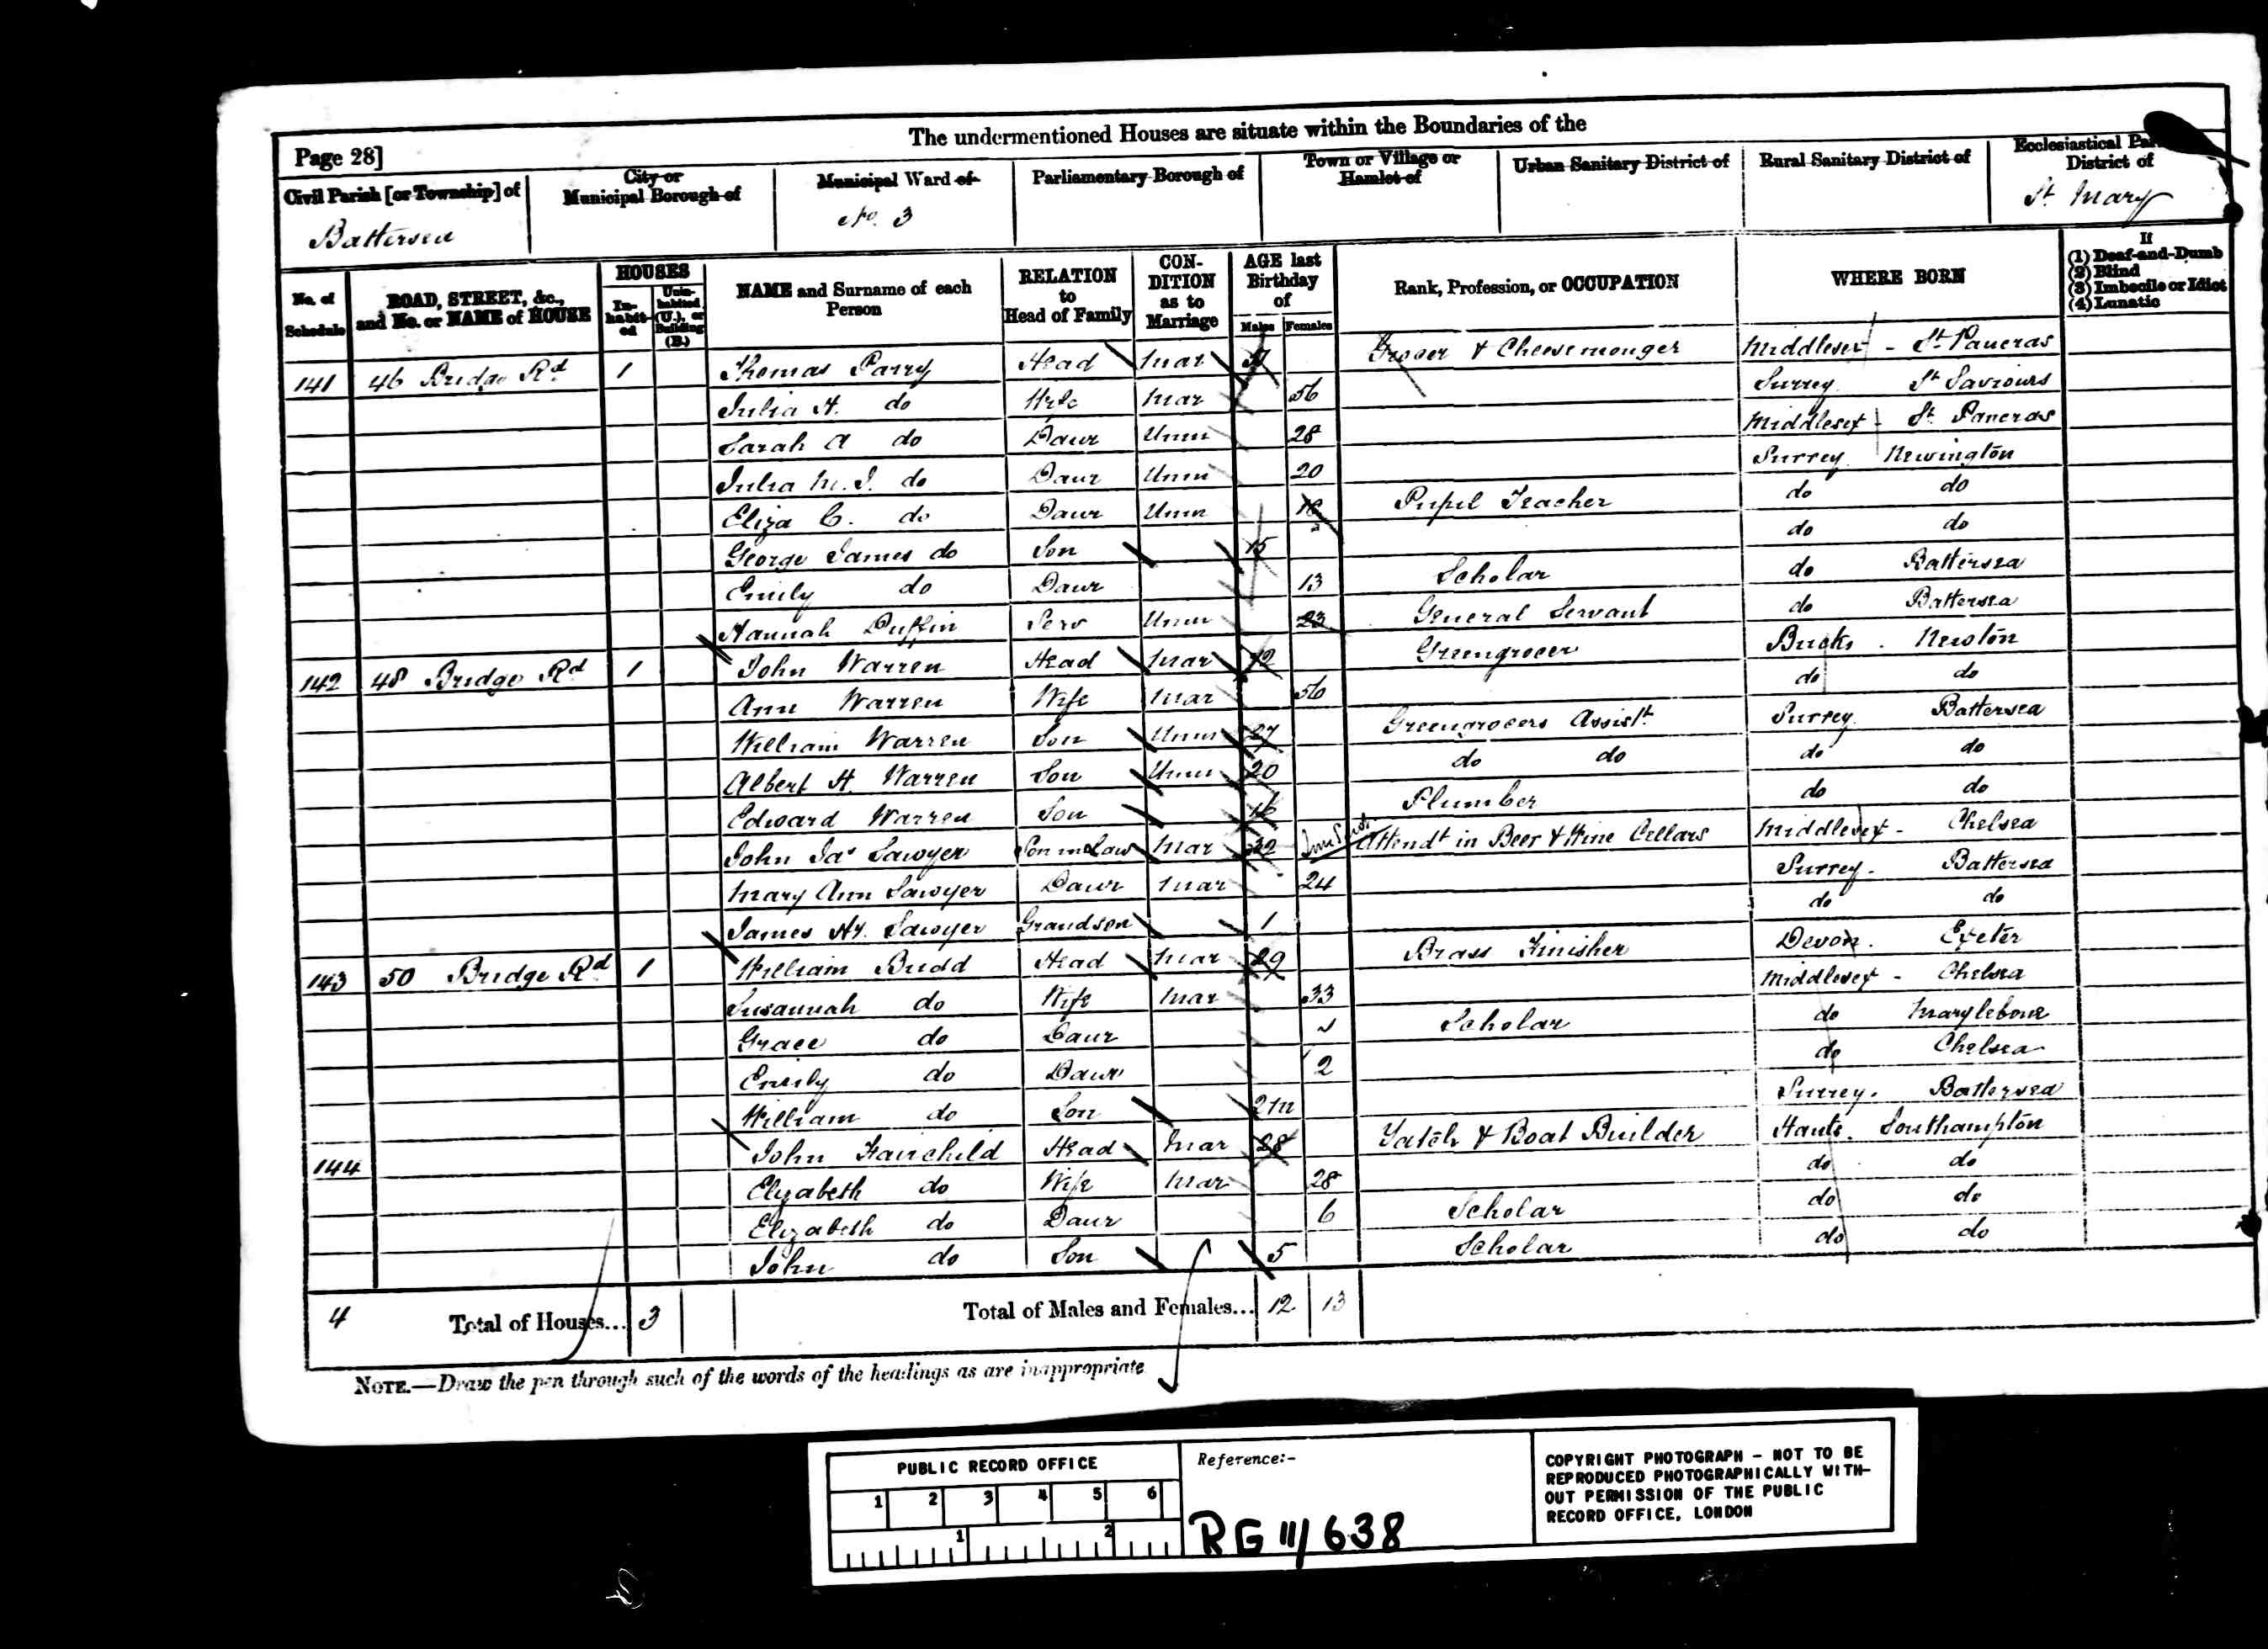 The undermentioned Houses are situate within the Boundaries of the
Page 28]
Civil Parish [or Township] of
City or Municipal Borough of
Municipal Ward of
Parliamentary Borough of
Town or Village or Hamlet of
Urban Sanitary District of
Rural Sanitary District of
Ecclesiastical
District of
Battersea
No. 3
St. Mary
No. of Schedule
ROAD, STREET, &c., and No. or NAME of HOUSE
HOUSES
In-habit-ed
Unin-habited (U.), or Building (B.)
NAME and Surname of each Person
RELATION to Head of Family
CON-DITION as to Marriage
AGE last Birthday of
Males
Females
Rank, Profession, or OCCUPATION
WHERE BORN
If
(1) Deaf-and-Dumb
(2) Blind
(3) Imbecile or Idiot
(4) Lunatic
141 46 Bridge Rd 1 Thomas Parry Head Mar Grocer & Cheesemonger Middlesex - St. Pancras
Julia A. do Wife Mar 56 Surrey St Saviours
Sarah A do Daur Unm 28 Middlesex - St. Pancras
Julia M. J. do Daur Unm 20 Surrey Newington
Eliza C. do Daur Unm Pupil Teacher do do
George James do Son 15 do do
Emily do Daur 13 Scholar do Battersea
Hannah Duffin Serv Unm 23 General Servant do Battersea
142 48 Bridge Rd 1 John Warren Head Mar Greengrocer Bucks. Newton
Ann Warren Wife Mar 56 do do
William Warren Son Unm 27 Greengrocers Assist. Surrey Battersea
Albert H. Warren Son Unm 20 do do do do
Edward Warren Son 16 Plumber do do
John Jas Sawyer Son in Law Mar 32 Attendt in Beer & Wine Cellars Middlesex - Chelsea
Mary Ann Sawyer Daur Mar 24 Surrey. Battersea
James Hy. Sawyer Grandson 1 do do
143 50 Bridge Rd 1 William Budd Head Mar 29 Brass Finisher Devon. Exeter
Susannah do Wife Mar 33 Middlesex - Chelsea
Grace do Daur Scholar do Marylebone
Emily do Daur 2 do Chelsea
William do Son 2m Surrey. Battersea
144 John Fairchild Head Mar 28 Yatch & Boat Builder Hants. Southampton
Elizabeth do Wife Mar 28 do do
Elizabeth do Daur 6 Scholar do do
John do Son 5 Scholar do do
4 Total of Houses... 3 Total of Males and Females... 12 13
NOTE.—Draw the pen through such of the words of the headings as are inappropriate
PUBLIC RECORD OFFICE
1 2 3 4 5 6
1 2
Reference:-
RG 11/638
COPYRIGHT PHOTOGRAPH - NOT TO BE
REPRODUCED PHOTOGRAPHICALLY WITH-
OUT PERMISSION OF THE PUBLIC
RECORD OFFICE, LONDON